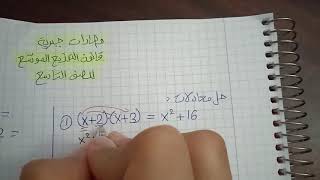 وظارات جبرية
قانون التوزيع الموسّع
للصف التاسع
حل معادلات:
① (x+2)·(x+3) = x² + 16
x² +